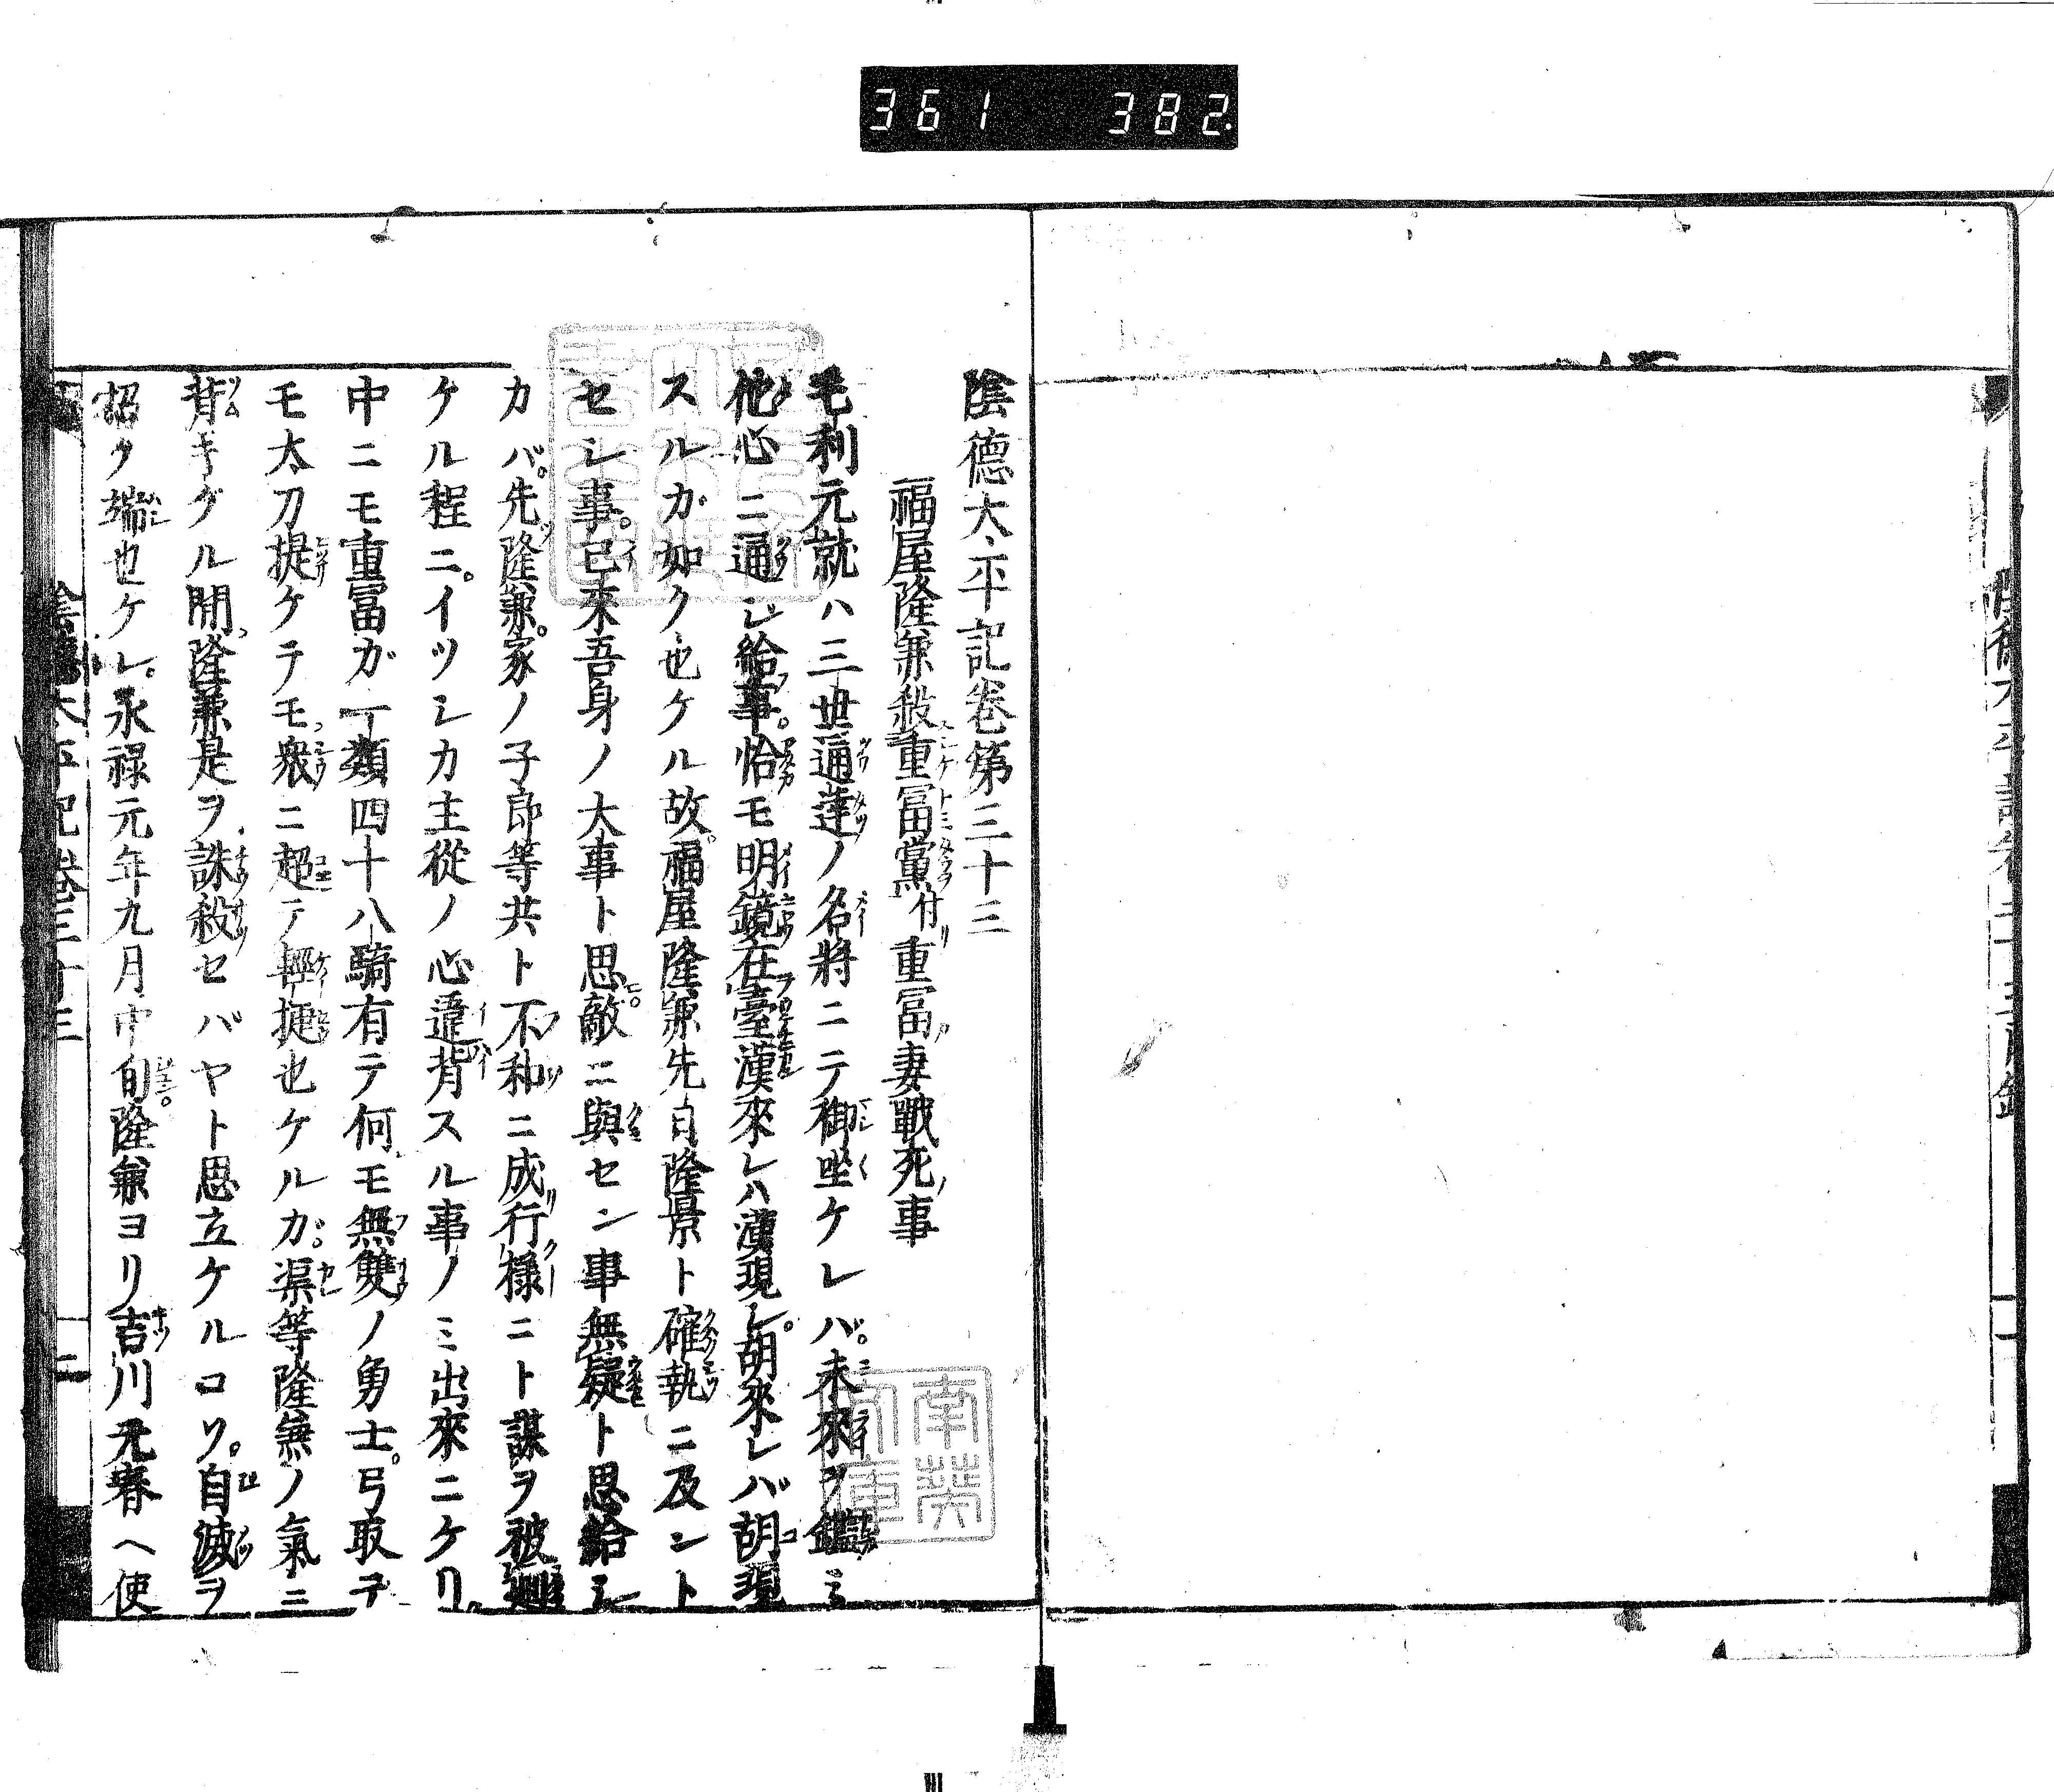 361 382
陰德太平記卷第三十三
福屋隆兼殺重冨黨付重冨妻戰死事
毛利元就ハ三世通達ノ名將ニテ御坐ケレバ。未來ヲ鑑ミ
他心ニ通ジ給事。恰モ明鏡在臺漢來レハ漢現レ。胡來レバ胡現
スルガ如ク也ケル故。福屋隆兼先自隆景ト確執ニ及ント
セシ事。已來吾身ノ大事ト思。敵ニ與セン事無疑ト思給シ
カバ。先隆兼。家ノ子郎等共ト不和ニ成行樣ニト謀ヲ被廻
ケル程ニ。イツシカ主從ノ心違背スル事ノミ出來ニケリ。
中ニモ重冨ガ一類四十八騎有テ何モ無雙ノ勇士。弓取テ
モ太刀提ケテモ衆ニ超テ輕捷也ケルカ。渠等隆兼ノ氣ニ
背キケル間。隆兼是ヲ誅殺セバヤト思立ケルコソ。自滅ヲ
招ク端也ケレ。永祿元年九月中旬。隆兼ヨリ吉川元春ヘ使
陰德太平記卷三十三
二
南葵文庫